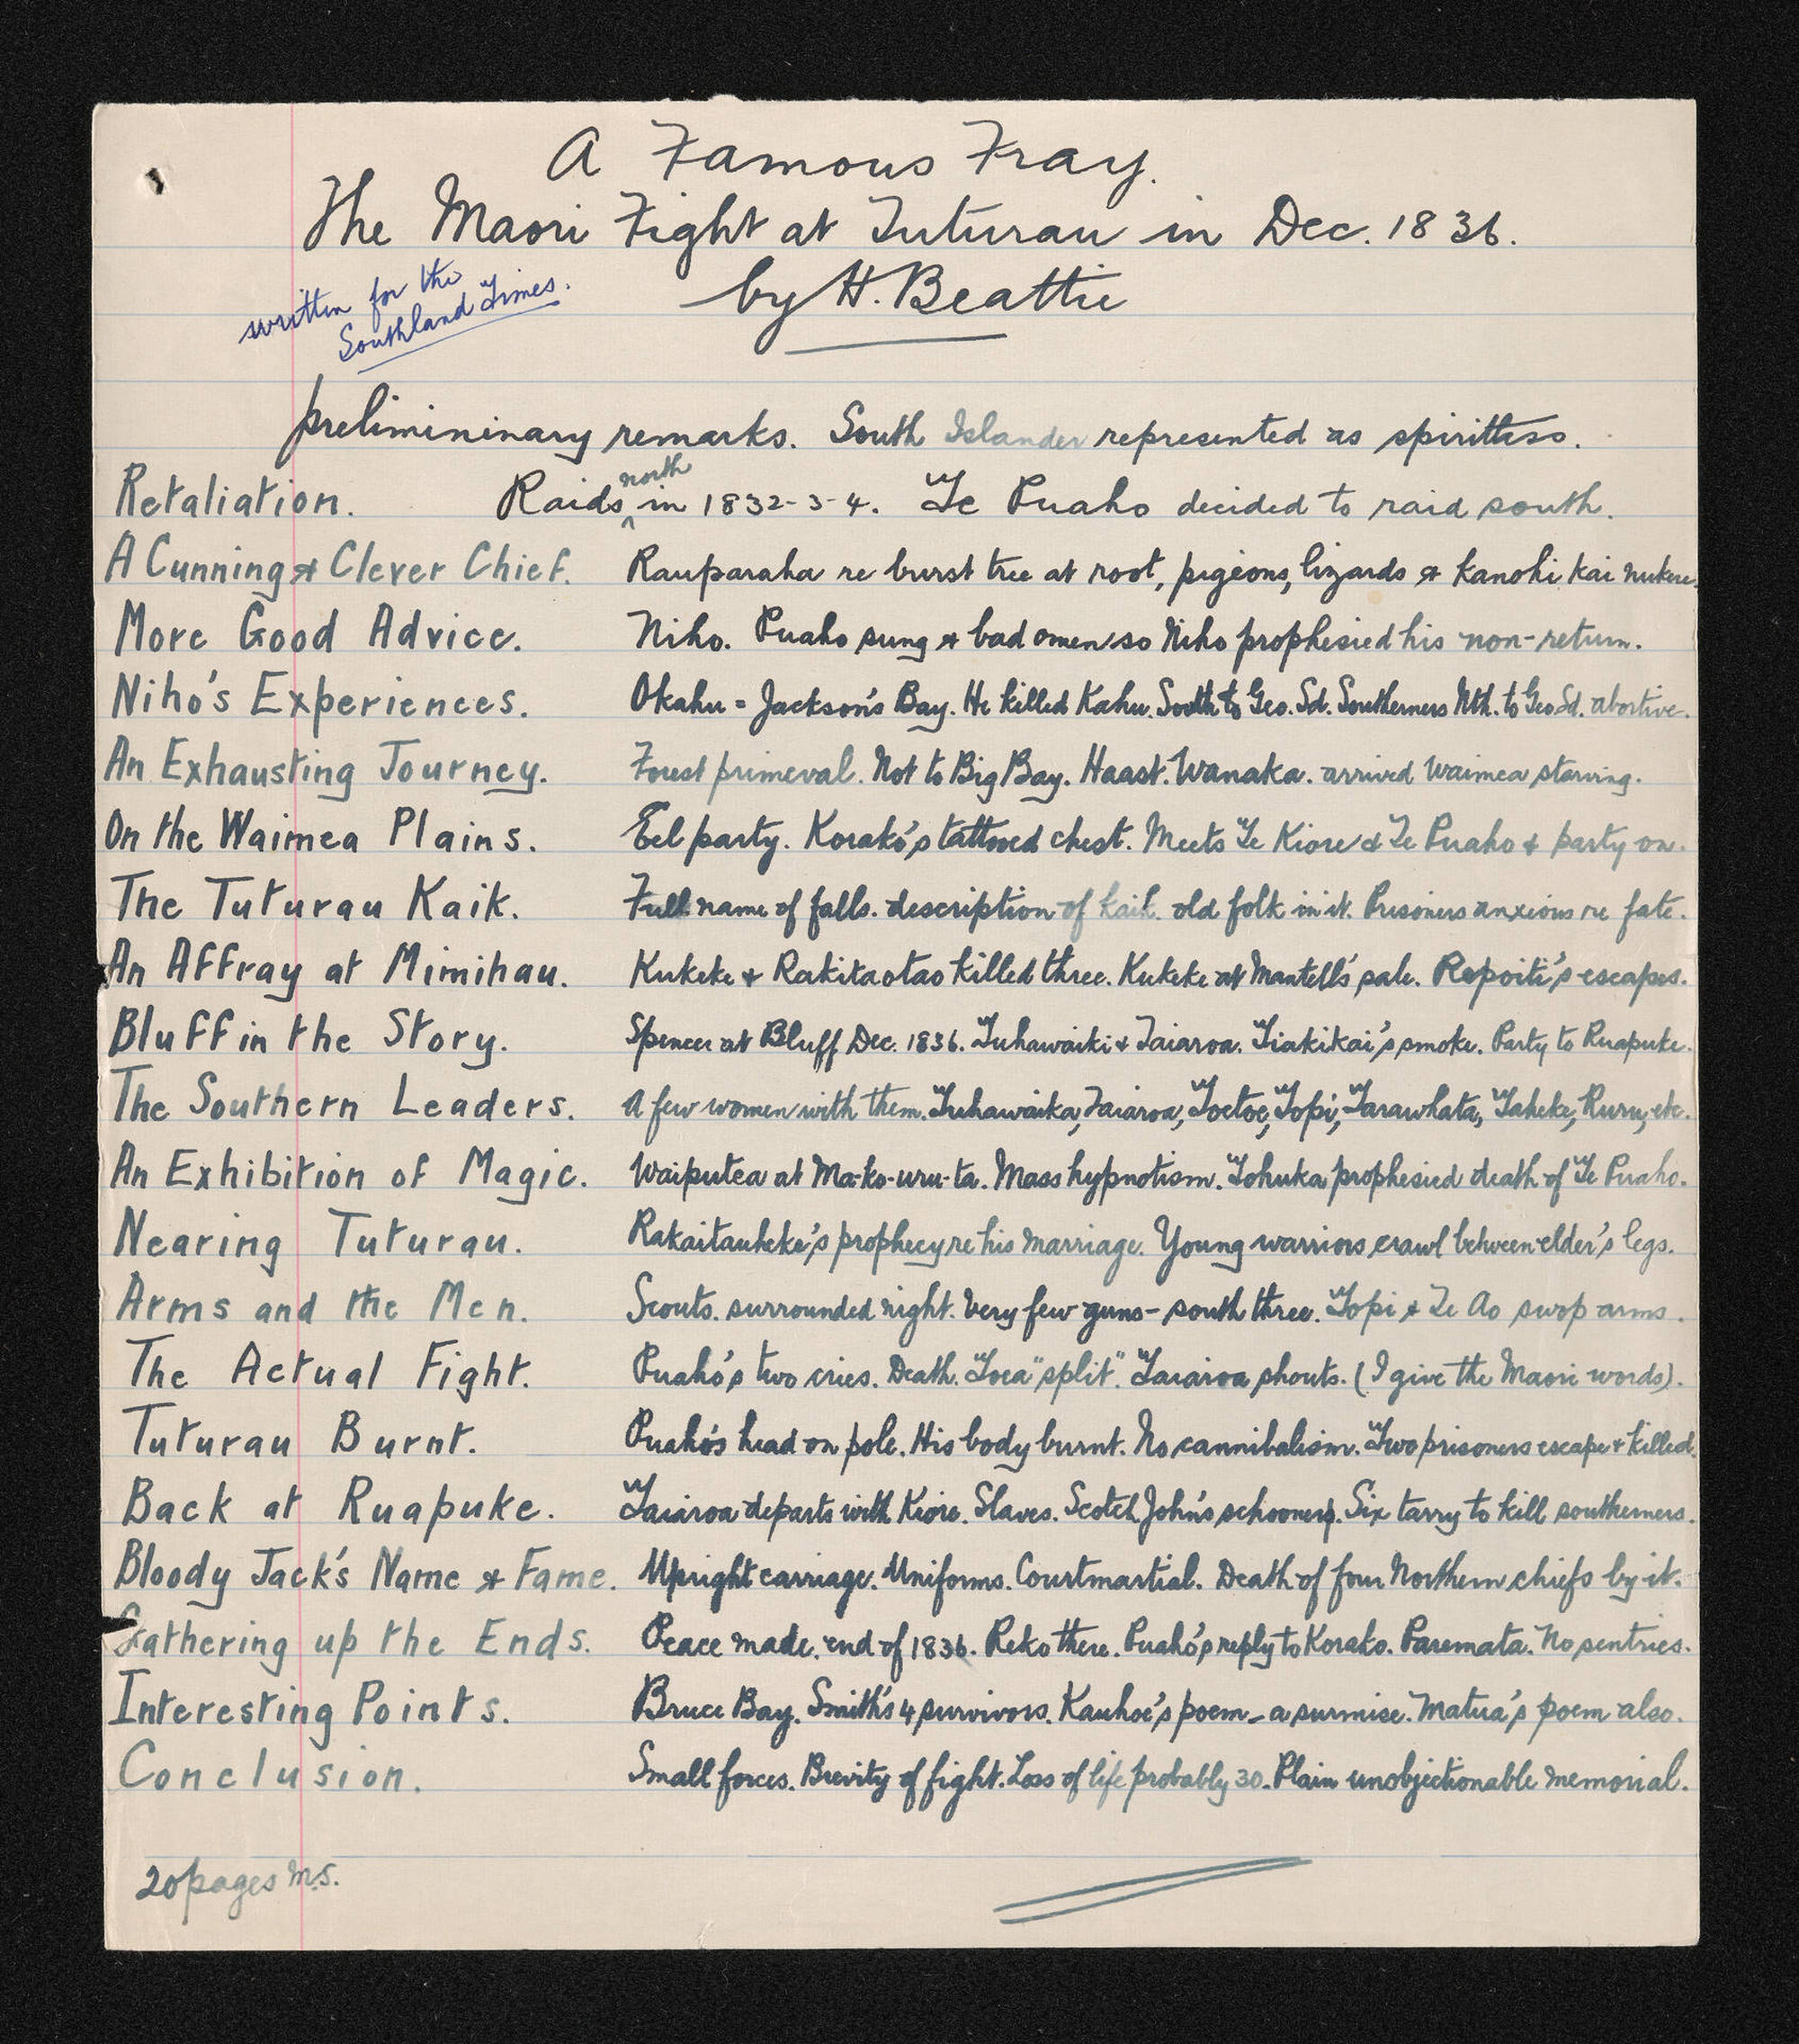 A Famous Fray.
The Maori Fight at Tuturau in Dec. 1836.
by H. Beattie
written for the
Southland Times.
prelimininary remarks. South Islander represented as spiritless.
Retaliation. Raids north in 1832-3-4. Te Puaho decided to raid south.
A Cunning & Clever Chief. Rauparaha re burst tree at root, pigeons, lizards & kanohi kai
More Good Advice. Niho. Puaho sung & bad omen so Niho prophesied his non-return.
Niho's Experiences. Okahu = Jackson's Bay. He killed Kahu. South to Geo. Sd. Southerners Nth. to Geo Sd. abortive.
An Exhausting Journey. Forest primeval. Not to Big Bay. Haast. Wanaka. arrived Waimea starving.
On the Waimea Plains. Eel party. Korako's tattooed chest. Meets Te Kiore & Te Puaho & party on.
The Tuturau Kaik. Full name of falls. description of kaik. old folk in it. Prisoners anxious re fate.
An Affray at Mimihau. Kukeke & Rakitaotao killed three. Kukeke at Mantell's sale. Repoiti's escapes.
Bluff in the Story. Spencer at Bluff Dec. 1836. Tuhawaiki & Taiaroa. Tiakikai's smoke. Party to Ruapuke.
The Southern Leaders. A few women with them. Tuhawaika, Taiaroa, Toetoe, Topi, Tarawhata, Taheke, Ruru, etc.
An Exhibition of Magic. Waiputea at Ma-ko-uru-ta. Mass hypnotism. Tohuka prophesied death of Te Puaho.
Nearing Tuturau. Rakaitauheke's prophecy re his marriage. Young warriors crawl between elder's legs.
Arms and the Men. Scouts. surrounded night. Very few guns - south three. Topi & Te Ao swop arms.
The Actual Fight. Puaho's two cries. Death. Toea "split". Taiaroa shouts. (I give the Maori words).
Tuturau Burnt. Puaho's head on pole. His body burnt. No cannibalism. Two prisoners escape & killed.
Back at Ruapuke. Taiaroa departs with Kiore. Slaves. Scotch John's schooner. Six tarry to kill southerners.
Bloody Jack's Name & Fame. Upright carriage. Uniforms. Courtmartial. Death of four Northern chiefs by it.
Gathering up the Ends. Peace made. end of 1836. Reko there. Puaho's reply to Korako. Paremata. No sentries.
Interesting Points. Bruce Bay. Smith's 4 survivors. Kauhoe's poem - a surmise. Matua's poem also.
Conclusion. Small forces. Brevity of fight. Loss of life probably 30. Plain unobjectionable memorial.
20 pages M.S.